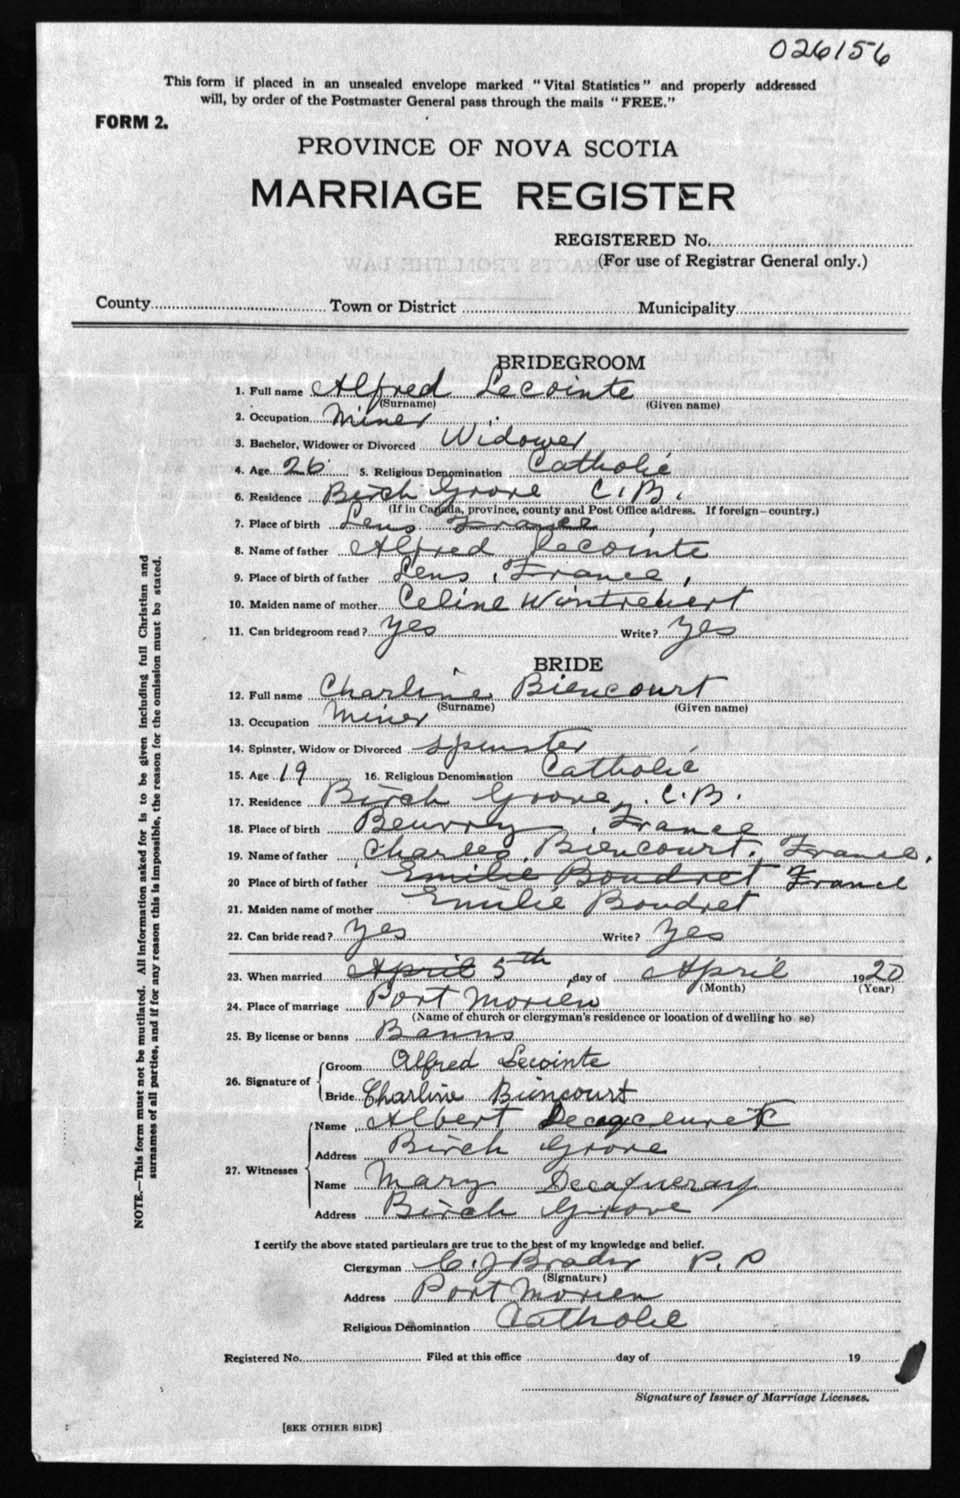 026156
This form if placed in an unsealed envelope marked "Vital Statistics" and properly addressed
will, by order of the Postmaster General pass through the mails "FREE."
FORM 2.
PROVINCE OF NOVA SCOTIA
MARRIAGE REGISTER
REGISTERED No.
(For use of Registrar General only.)
County Town or District Municipality
BRIDEGROOM
1. Full name Alfred Lecointe
(Surname) (Given name)
2. Occupation Miner
3. Bachelor, Widower or Divorced Widower
4. Age 26 5. Religious Denomination Catholic
6. Residence Birch Grove C.B.
(If in Canada, province, county and Post Office address. If foreign—country.)
7. Place of birth Lens France
8. Name of father Alfred Lecointe
9. Place of birth of father Lens, France,
10. Maiden name of mother Celine Wintrebert
11. Can bridegroom read? Yes Write? Yes
BRIDE
12. Full name Charline Biencourt
(Surname) (Given name)
13. Occupation Miner
14. Spinster, Widow or Divorced Spinster
15. Age 19 16. Religious Denomination Catholic
17. Residence Birch Grove, C.B.
18. Place of birth Beuvry, France
19. Name of father Charles Biencourt, France,
20 Place of birth of father Emilie Boudret France
21. Maiden name of mother Emilie Boudret
22. Can bride read? Yes Write? Yes
23. When married April 5th day of April 1920
(Month) (Year)
24. Place of marriage Port Morien
(Name of church or clergyman's residence or location of dwelling ho se)
25. By license or banns Banns
26. Signature of
Groom Alfred Lecointe
Bride Charline Biencourt
27. Witnesses
Name Albert
Address Birch Grove
Name Mary
Address Birch Grove
I certify the above stated particulars are true to the best of my knowledge and belief.
Clergyman C. J. P.P
(Signature)
Address Port Morien
Religious Denomination Catholic
Registered No. Filed at this office day of 19
Signature of Issuer of Marriage Licenses.
[SEE OTHER SIDE]
NOTE.—This form must not be mutilated. All information asked for is to be given including full Christian and
surnames of all parties, and if for any reason this is impossible, the reason for the omission must be stated.